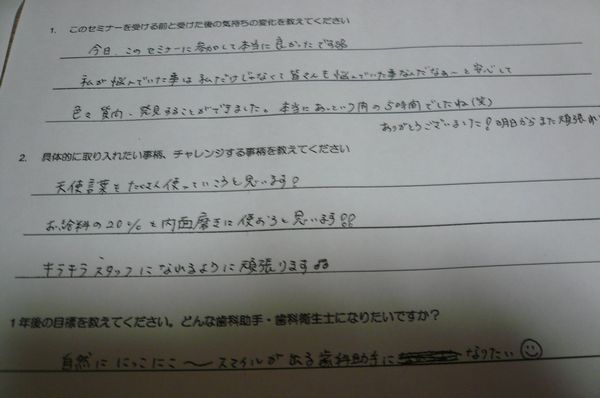 1. このセミナーを受ける前と受けた後の気持ちの変化を教えてください
今日、このセミナーに参加して本当に良かったです
私が悩んでいた事は私だけじゃなくて皆さんも悩んでいた事なんだなぁ〜と安心して
色々質問・発見することができました。本当にあっという間の5時間でしたね(笑)
ありがとうございました！明日からまた頑張
2. 具体的に取り入れたい事柄、チャレンジする事柄を教えてください
天使言葉をたくさん使っていこうと思います！
お給料の20%を内面磨きに使おうと思います!!
キラキラスタッフになれるように頑張ります
1年後の目標を教えてください。どんな歯科助手・歯科衛生士になりたいですか？
自然ににっこにこ〜スマイルがある歯科助手になりたい